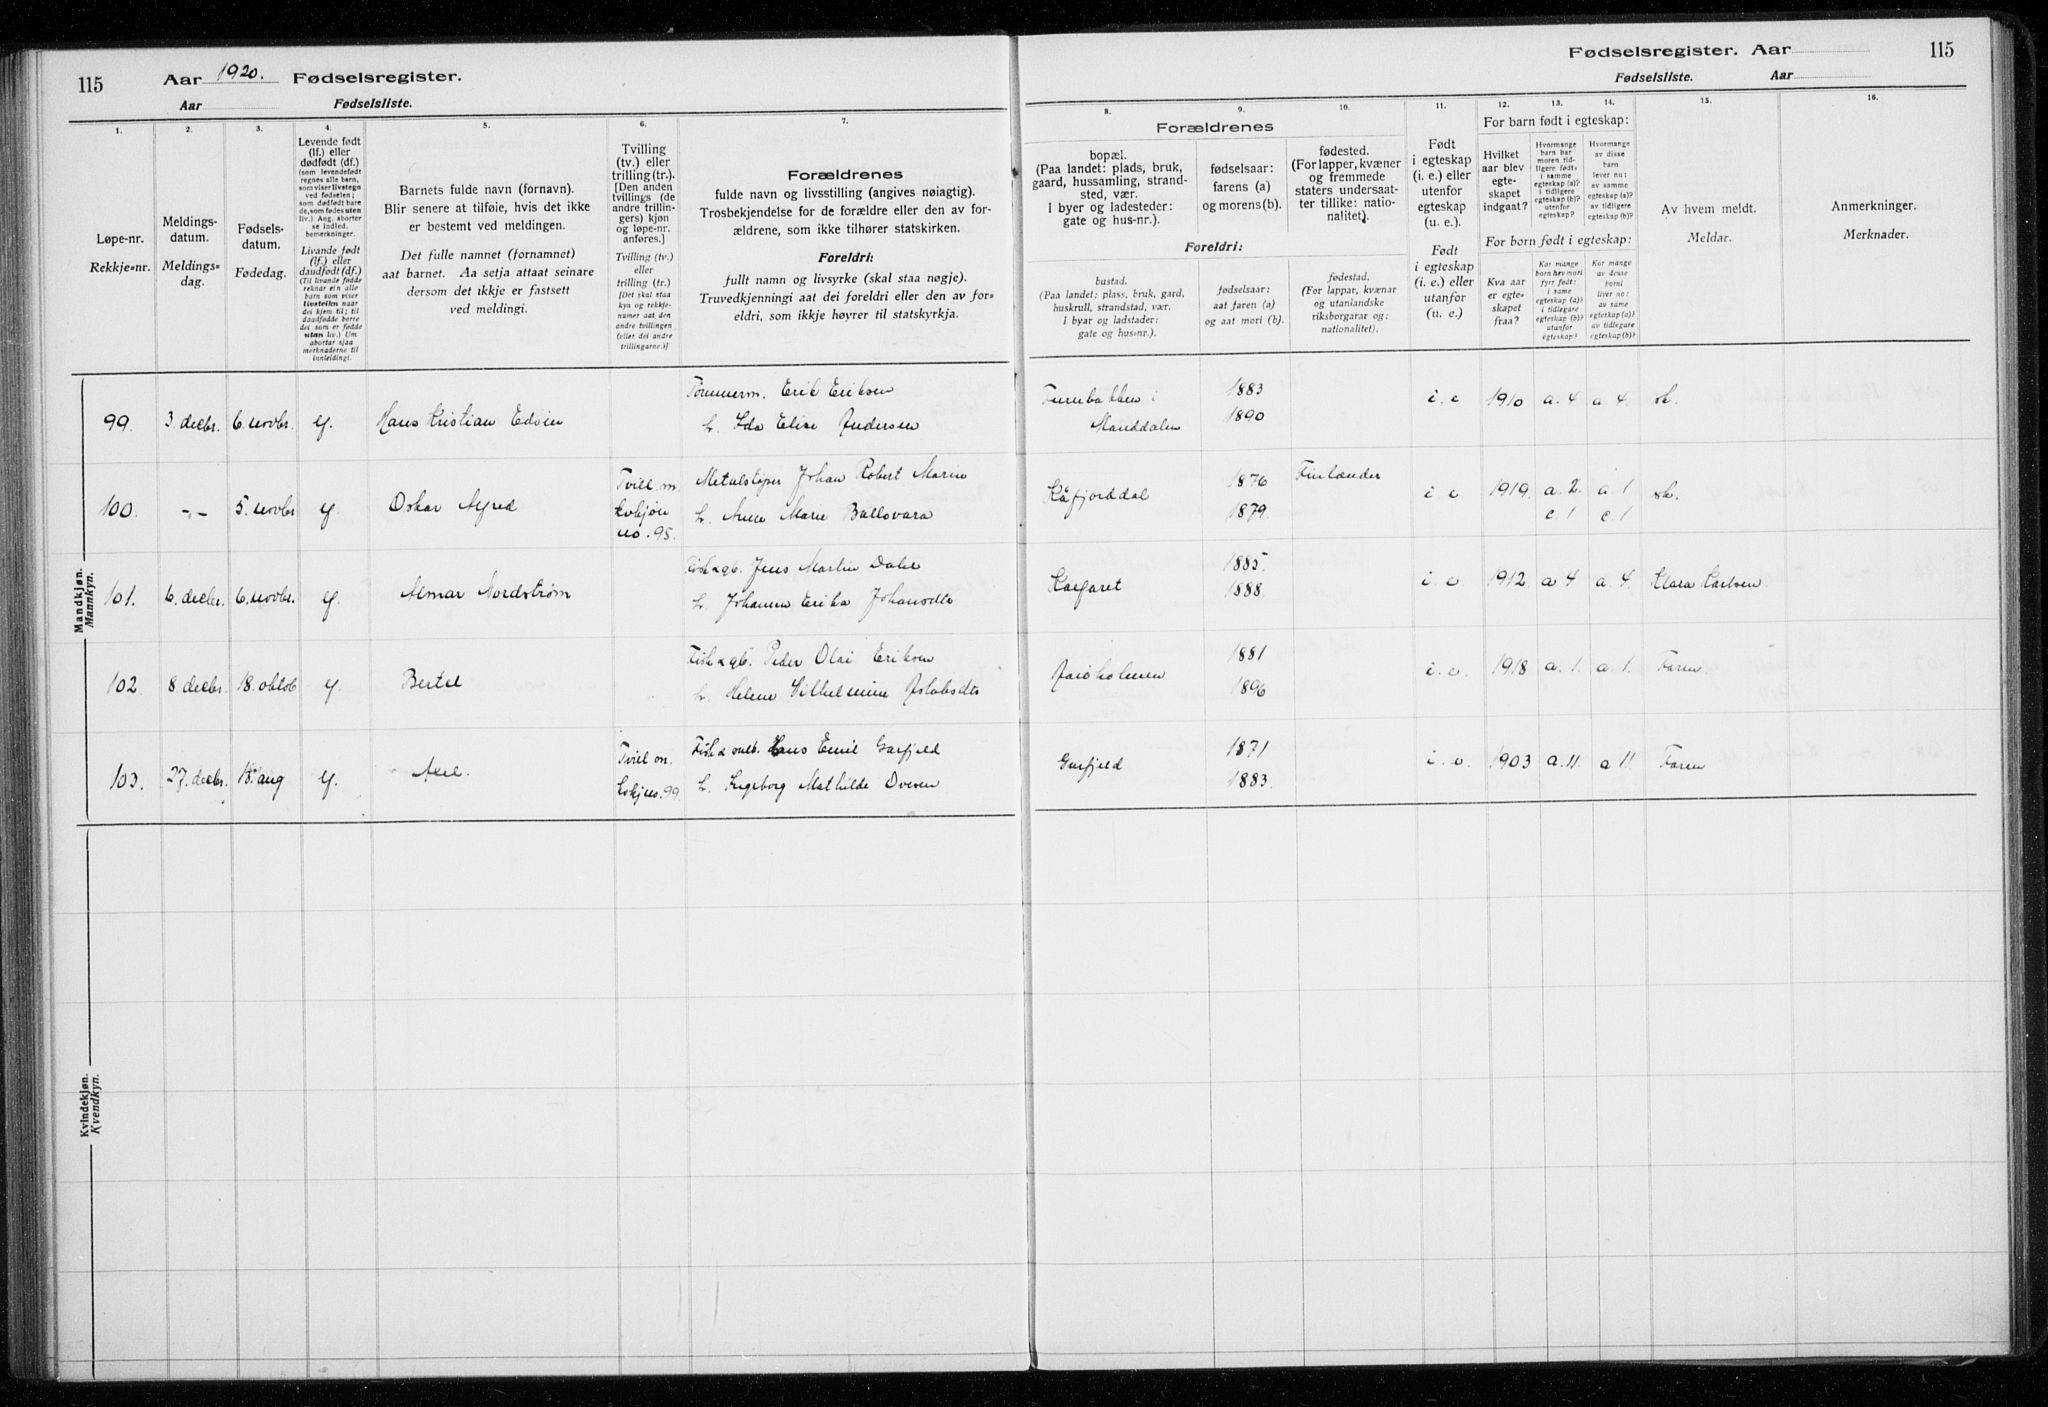 115 Aar 1920. Fødselsregister.
Aar Fødselsliste.
Fødselsregister. Aar 115
Fødselsliste. Aar
1. 2. 3. 4. 5. 6. 7.
Løpe-nr.
Rekkje=nr.
Meldings-
datum.
Meldings=
dag.
Fødsels-
datum.
Fødedag.
Levende født
(lf.) eller
dødfødt (df.)
(som levendefødt
regnes alle barn,
som viser livstegn
ved fødselen;
som dødfødt bare
de, som fødes uten
liv.) Ang. aborter
se indled.
bemerkninger.
Livande født
(lf.) eller
daudfødt (df.)
(Til livande fødde
reknar ein alle
barn som viser
livsteikn naar
dei kjem til; til
daudfødde berre
dei som er fødde
utan liv.) Um
abortar sjaa
merknaderne til
innleidingi.
Barnets fulde navn (fornavn).
Blir senere at tilføie, hvis det ikke
er bestemt ved meldingen.
Det fulle namnet (fornamnet)
aat barnet. Aa setja attaat seinare
dersom det ikkje er fastsett
ved meldingi.
Tvilling
(tv.) eller
trilling (tr.).
[Den anden
tvillings (de
andre trillin-
gers) kjøn
og løpe-nr.
anføres.]
Tvilling (tv.)
eller
trilling (tr.)
[Det skal staa
kyn og rekkje-
numer aat den
andre tvillingen
(eller dei andre
trillingarne.)]
Forældrenes
fulde navn og livsstilling (angives nøiagtig).
Trosbekjendelse for de forældre eller den av for-
ældrene, som ikke tilhører statskirken.
Foreldri:
fullt namn og livsyrke (skal staa nøgje).
Truvedkjenningi aat dei foreldri eller den av for=
eldri, som ikkje høyrer til statskyrkja.
8. 9. 10. 11. 12. 13. 14. 15. 16.
Forældrenes
bopæl.
(Paa landet: plads, bruk,
gaard, hussamling, strand-
sted, vær.
I byer og ladesteder:
gate og hus-nr.).
fødselsaar:
farens (a)
og morens (b).
fødested.
(For lapper, kvæner
og fremmede
staters undersaat-
ter tillike: natio-
nalitet).
Foreldri:
bustad.
(Paa landet: plass, bruk, gard,
huskrull, strandstad, vær.
I byar og ladstader:
gate og hus=nr.).
fødselsaar:
aat faren (a)
og aat mori (b).
fødestad.
(For lappar, kvænar
og utanlandske
riksborgarar og:
nationalitet).
Født
i egteskap
(i. e.) eller
utenfor
egteskap
(u. e.).
Født
i egteskap
(i. e.) eller
utanfor
(u. e.)
For barn født i egteskap:
Hvilket
aar blev
egte-
skapet
indgaat?
Hvormange
barn har
moren tid-
ligere født,
i samme
egteskap (a)?
i tidligere
egteskap (b)?
utenfor
egteskap?
Hvormange
av disse
barn
lever nu:
av samme
egteskap (a)?
av tidligere
egteskap (b)?
For born født i egteskap:
Kva aar
er egte-
skapet
fraa?
Kor mange
born hev mori
fyrr født:
i same
egteskap (a)?
i tidlegare
egteskap (b)?
utanfor
egteskap?
Kor mange
av desse
borni
liver no:
av same
egteskap (a)?
av tidlegare
egteskap (b)?
Av hvem meldt.
Meldar.
Anmerkninger.
Merknader.
Mandkjøn.
Mannkyn.
99. 3. decbr. 6. novbr. lf. Hans Kristian Edvin
Tømmerm. Erik Eriksen
h. Ida Elise Andersen
i
Manddalen
1883
1890
i. e 1910 a. 4 a 4.
100. -"- 5. novbr lf. Oskar Alfred
Tvill. m.
kvkjøn
no. 95.
Metalstøper Johan Robert
h. Anne Marie Ballovara
Kåfjorddal
1876
1879.
Finlænder
i e 1919. a. 2. a 1
c. 1 c. 1
101. 6. decbr. 6. novbr. lf. Almar Nordstrøm
Fisk & gb. Jens Martin Dalen
h. Johanna Erika Johansdtr
1885.
1888.
i. e 1912 a 4 a. 4. Klara Karlsen
102. 8. decbr. 18. oktob lf. Bertel
Fisk & gb. Peder Olai Eriksen
h. Helene Vilhelmine
1881
1896
i. e. 1918 a. 1. a 1. Faren
103. 27. decbr. 15. aug lf.
Tvill m.
kvkj no. 99
Fisk & Hans Emil Garfjeld
h. Ingeborg Mathilde
Garfjeld
1871
1883.
i. e. 1903 a. 11. a 11. Faren
Kvindekjøn.
Kvendkyn.